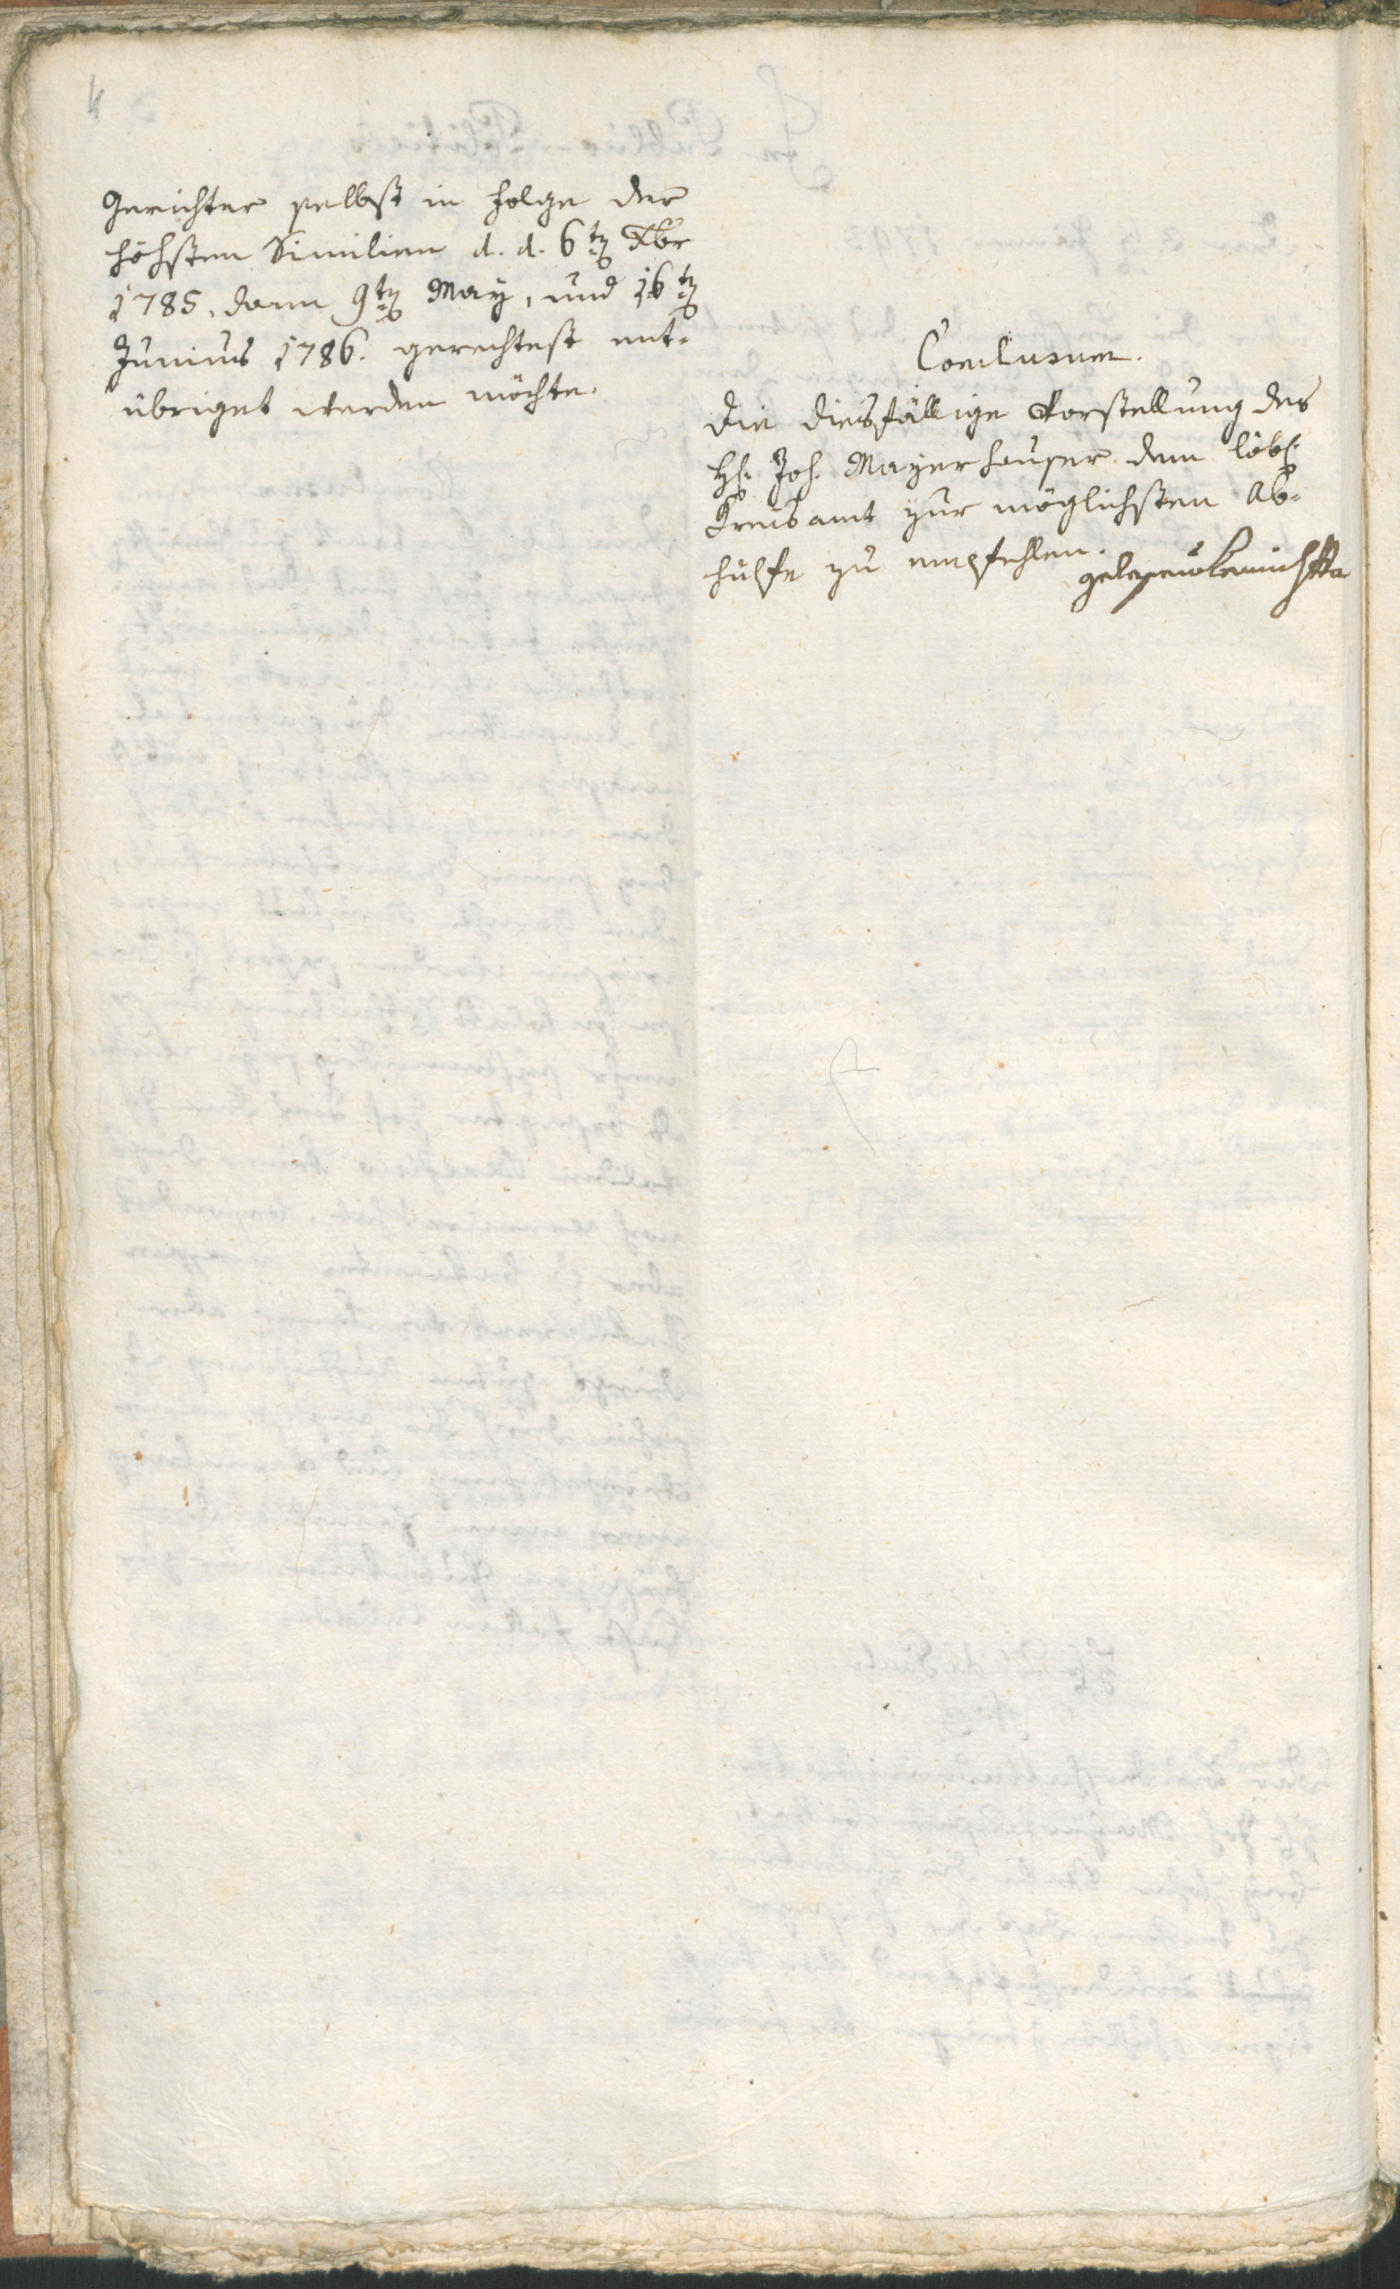 4
Gerichter selbst in Folge der
höchsten Similien d. d. 6ten Xbr
1785, dann 9ten May, und 16ten
Junius 1786. gerechtest ent-
übriget werden möchte.
Conclusum.
Die diesfällige Vorstellung des
H. Joh. Mayerhauser dem löbl.
Kreisamt zur möglichsten Ab-
hülfe zu empfehlen.
gelesen